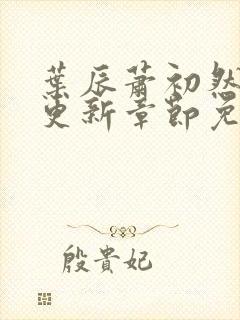 葉辰蕭初然
更新章節免
殷貴妃